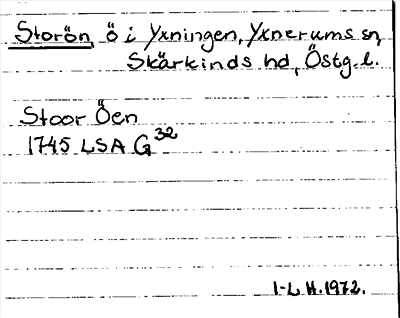 Storön, ö i Yxningen, Yxnerums sn,
Skärkinds hd, Östg. l.
Stoor Öen
1745 LSA G32
I-L H. 1972.